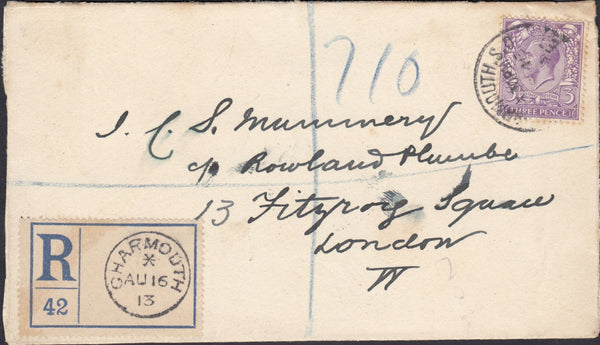 710
THREE PENCE
3
J. C. S. Mummery
c/o Rowland Plumbe
13 Fitzroy Square
London
W
R
42
CHARMOUTH
AU 16
13